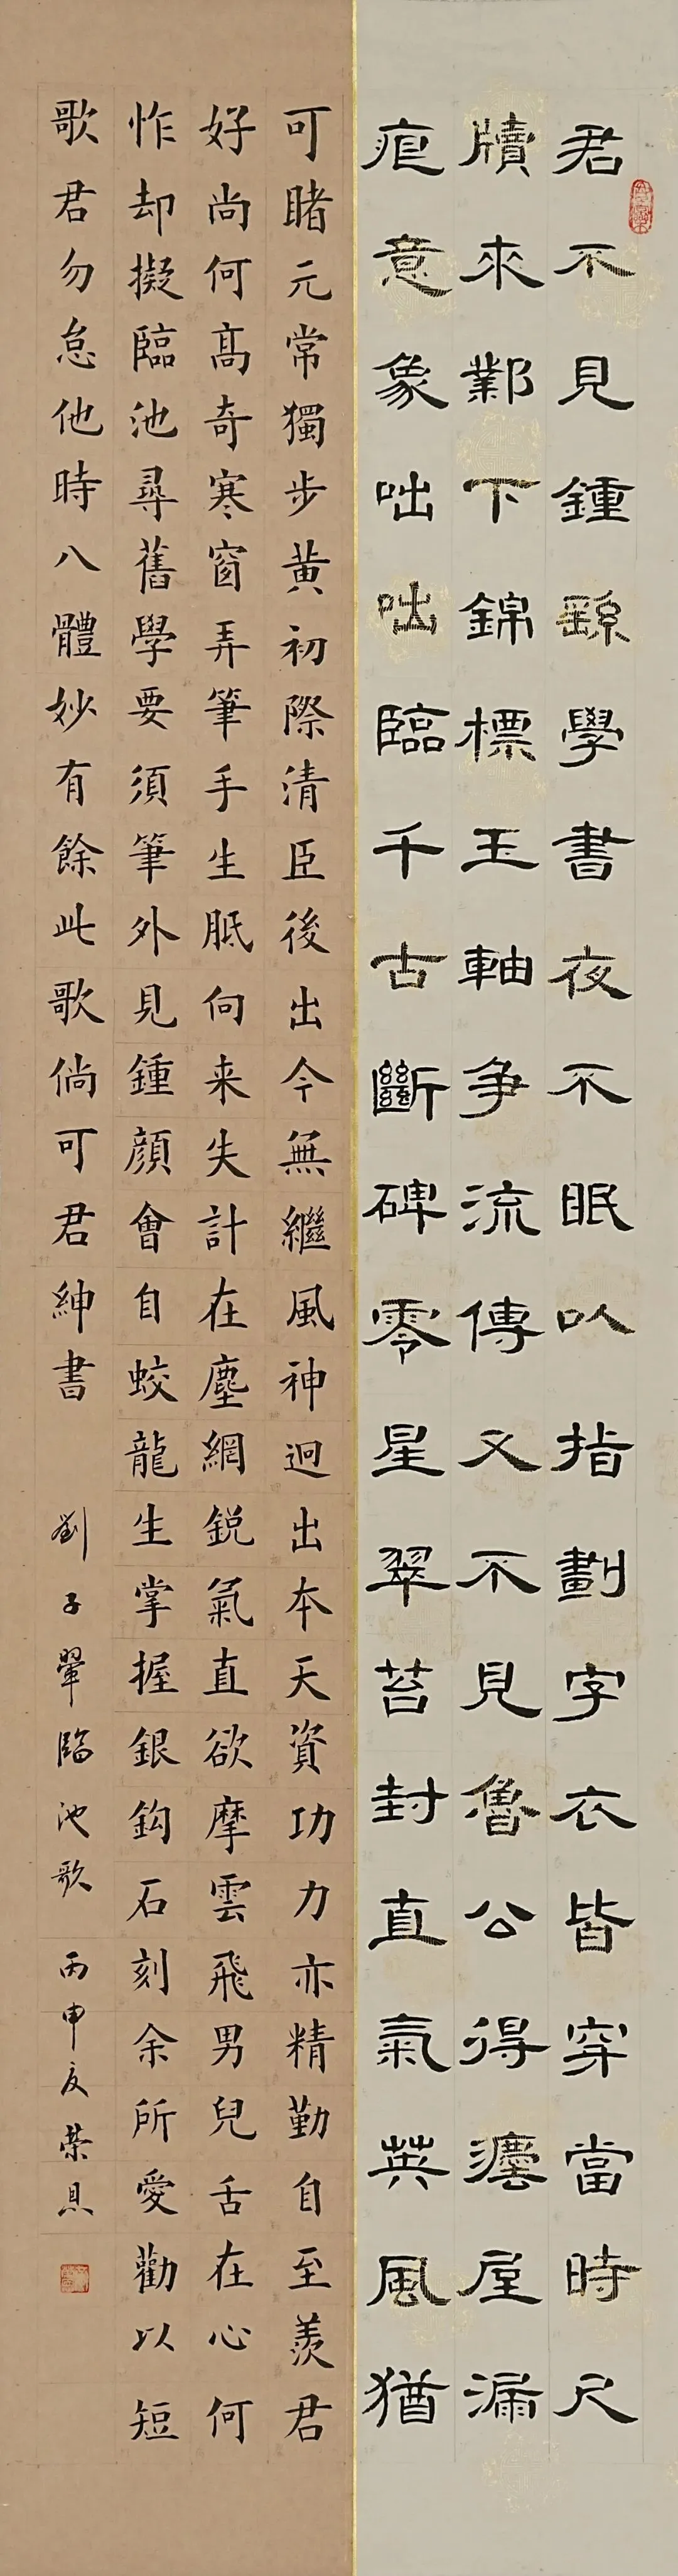 君不見鍾繇學書夜不眠以指劃字衣皆穿當時尺
牘來鄴下錦標玉軸争流傳又不見魯公得瀍屋漏
痕意象咄咄臨千古斷碑零星翠苔封直氣英風猶
可睹元常獨步黄初際清臣後出今無繼風神迥出本天資功力亦精勤自至羨君
好尚何高奇寒窗弄筆手生胝向来失計在塵網鋭氣直欲摩雲飛男兒舌在心何
怍却擬臨池尋舊學要須筆外見鍾顔會自蛟龍生掌握銀鈎石刻余所愛勸以短
歌君勿怠他時八體妙有餘此歌倘可君紳書 劉子翬臨池歌 丙申夏荣